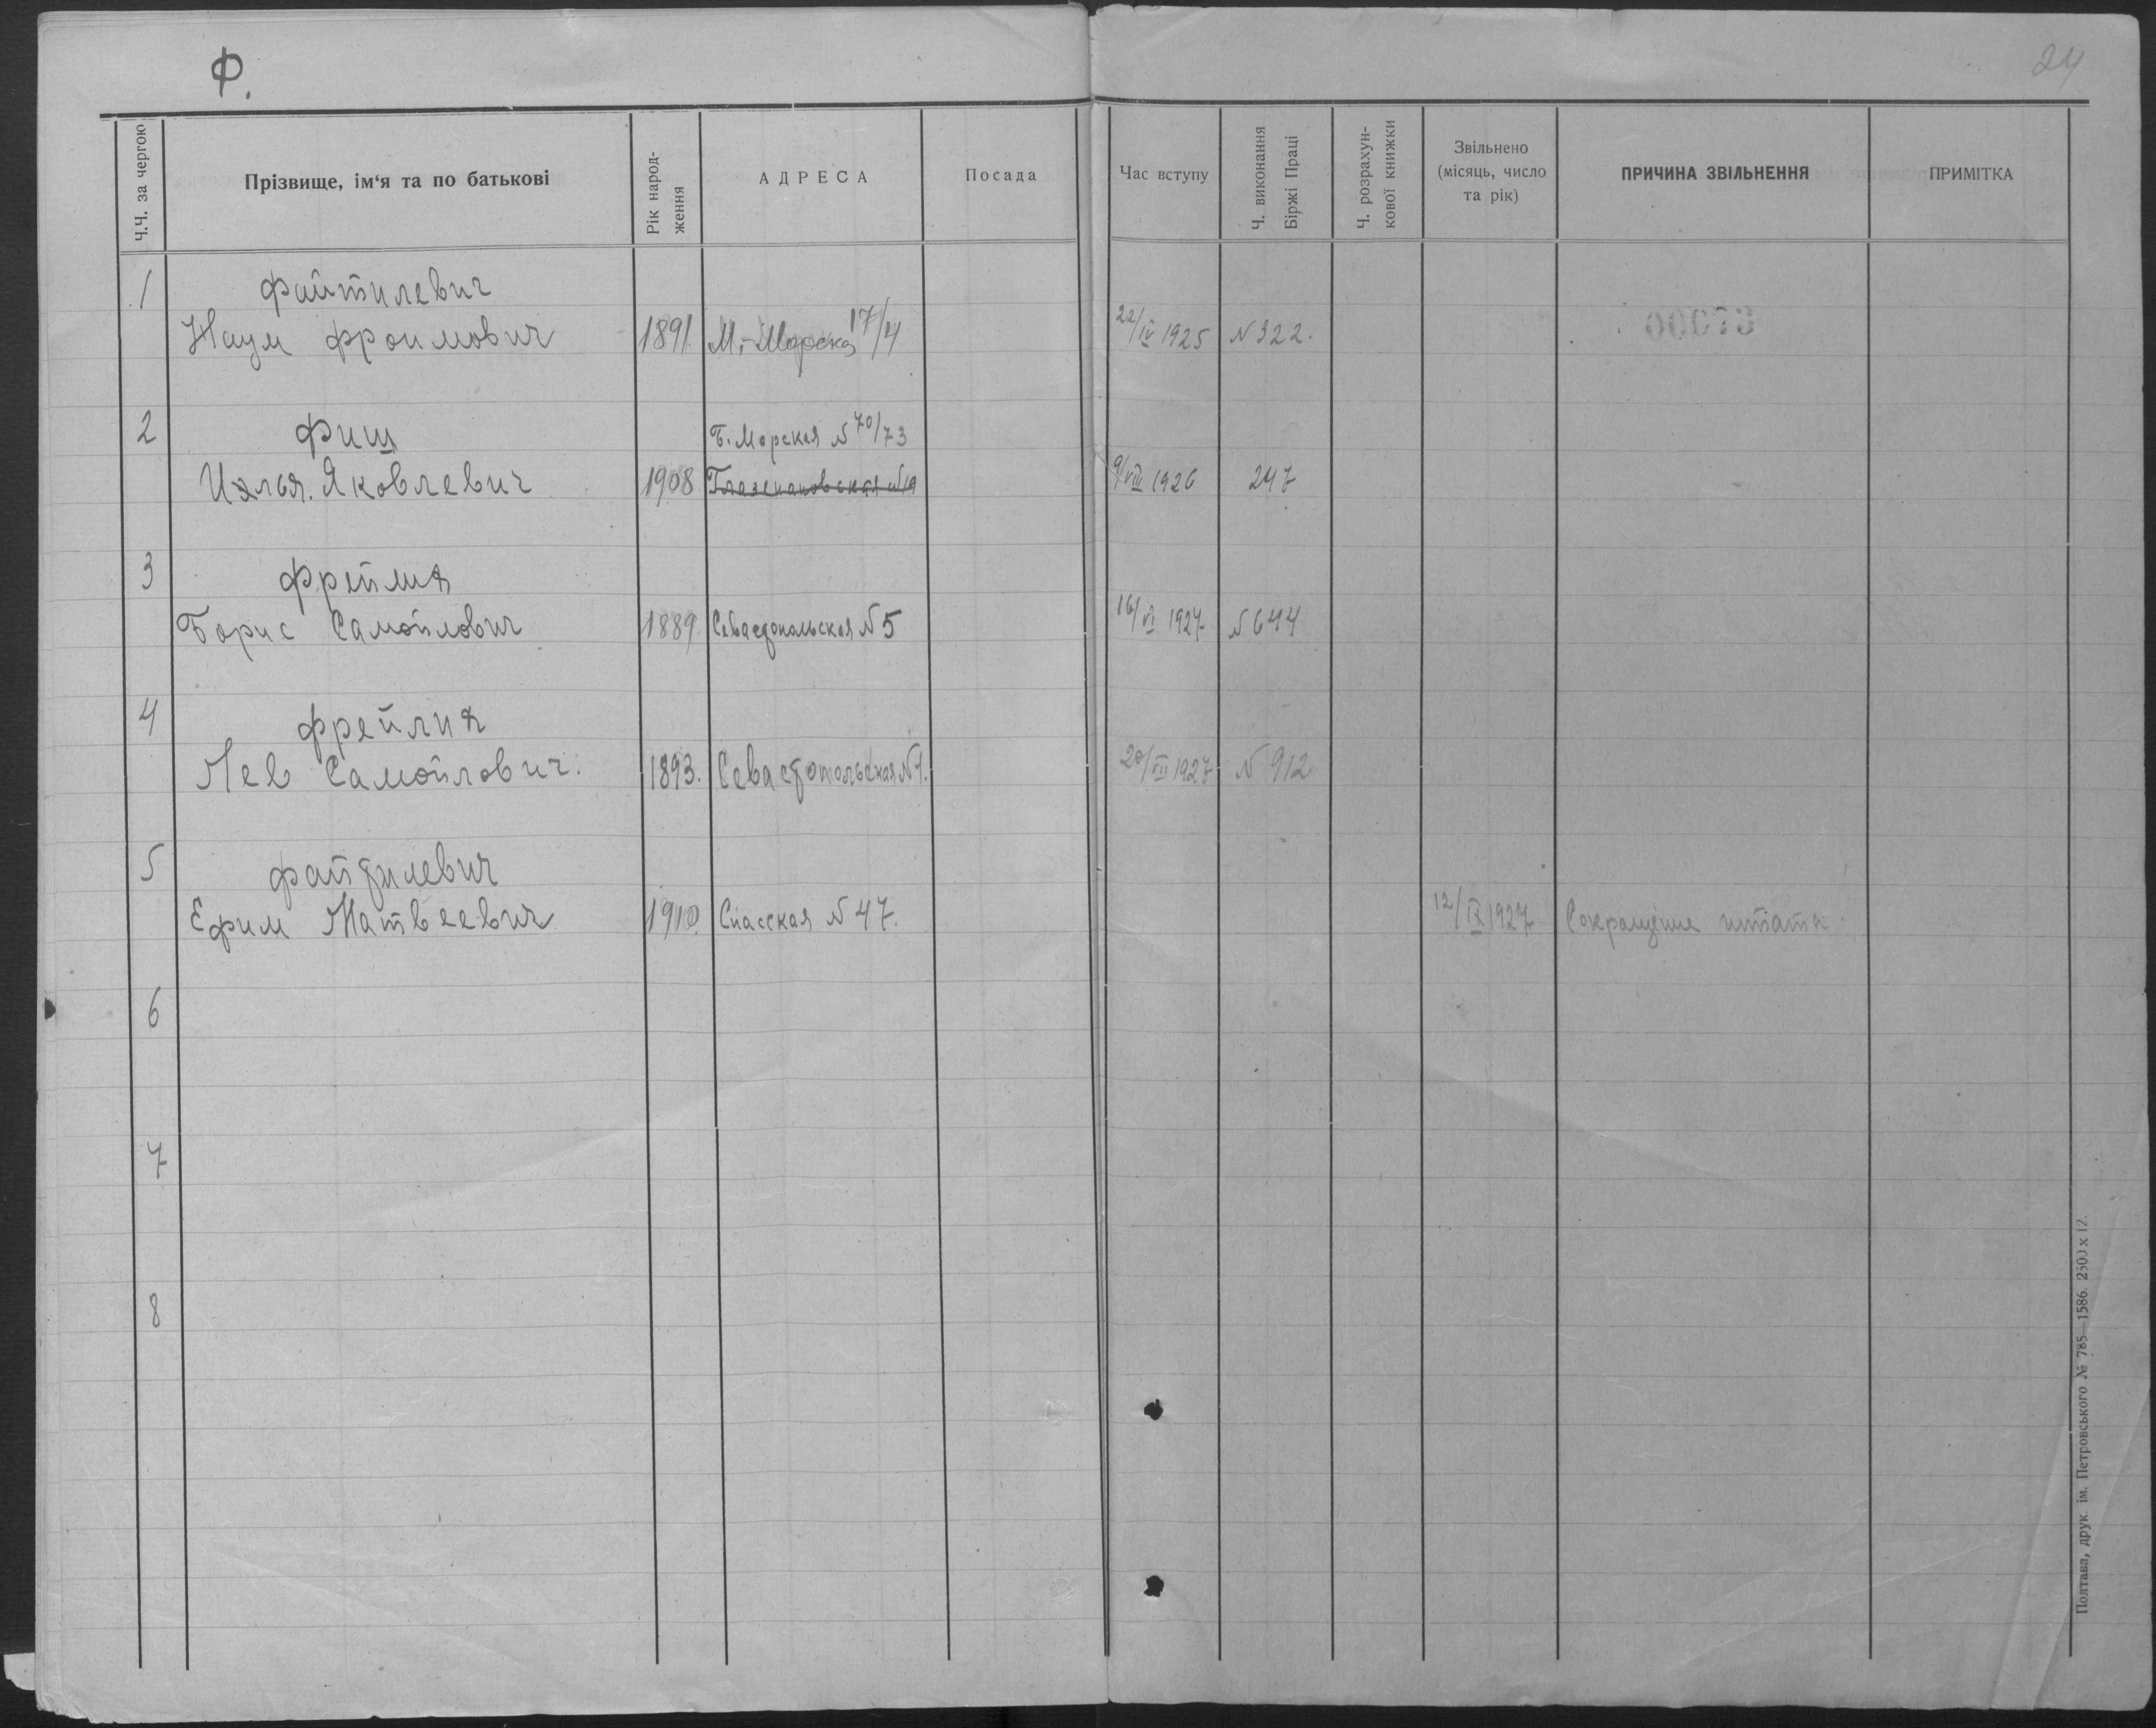 Ф.
24
Ч.Ч. за чергою
Прізвище, ім‘я та по батькові
Рік народ-
ження
АДРЕСА
Посада
Час вступу
Ч. виконання
Біржі Праці
Ч. розрахун-
кової книжки
Звільнено
(місяць, число
та рік)
ПРИЧИНА ЗВІЛЬНЕННЯ
ПРИМІТКА
1 Файтилевич
Наум Фроимович 1891. М.-Морская 17/4 22/IV 1925 N 322.
2 Фиш Б. Морская N 70/73
Илья. Яковлевич 1908 9/VIII 1926 247
3 Фрейлия
Борис Самойлович 1889. Севастопольская N 5 16/VI 1927 N 644
4 Фрейлия
Лев Самойлович. 1893. Севастопольская N 1. 20/VII 1927 N 912
5 Файтилевич
Ефим Матвеевич 1910. Спасская N 47. 12/IX 1927 Сокращение штата
6
7
8
Полтава, друк. ім. Петровського № 785—1586. 2500 x 12.